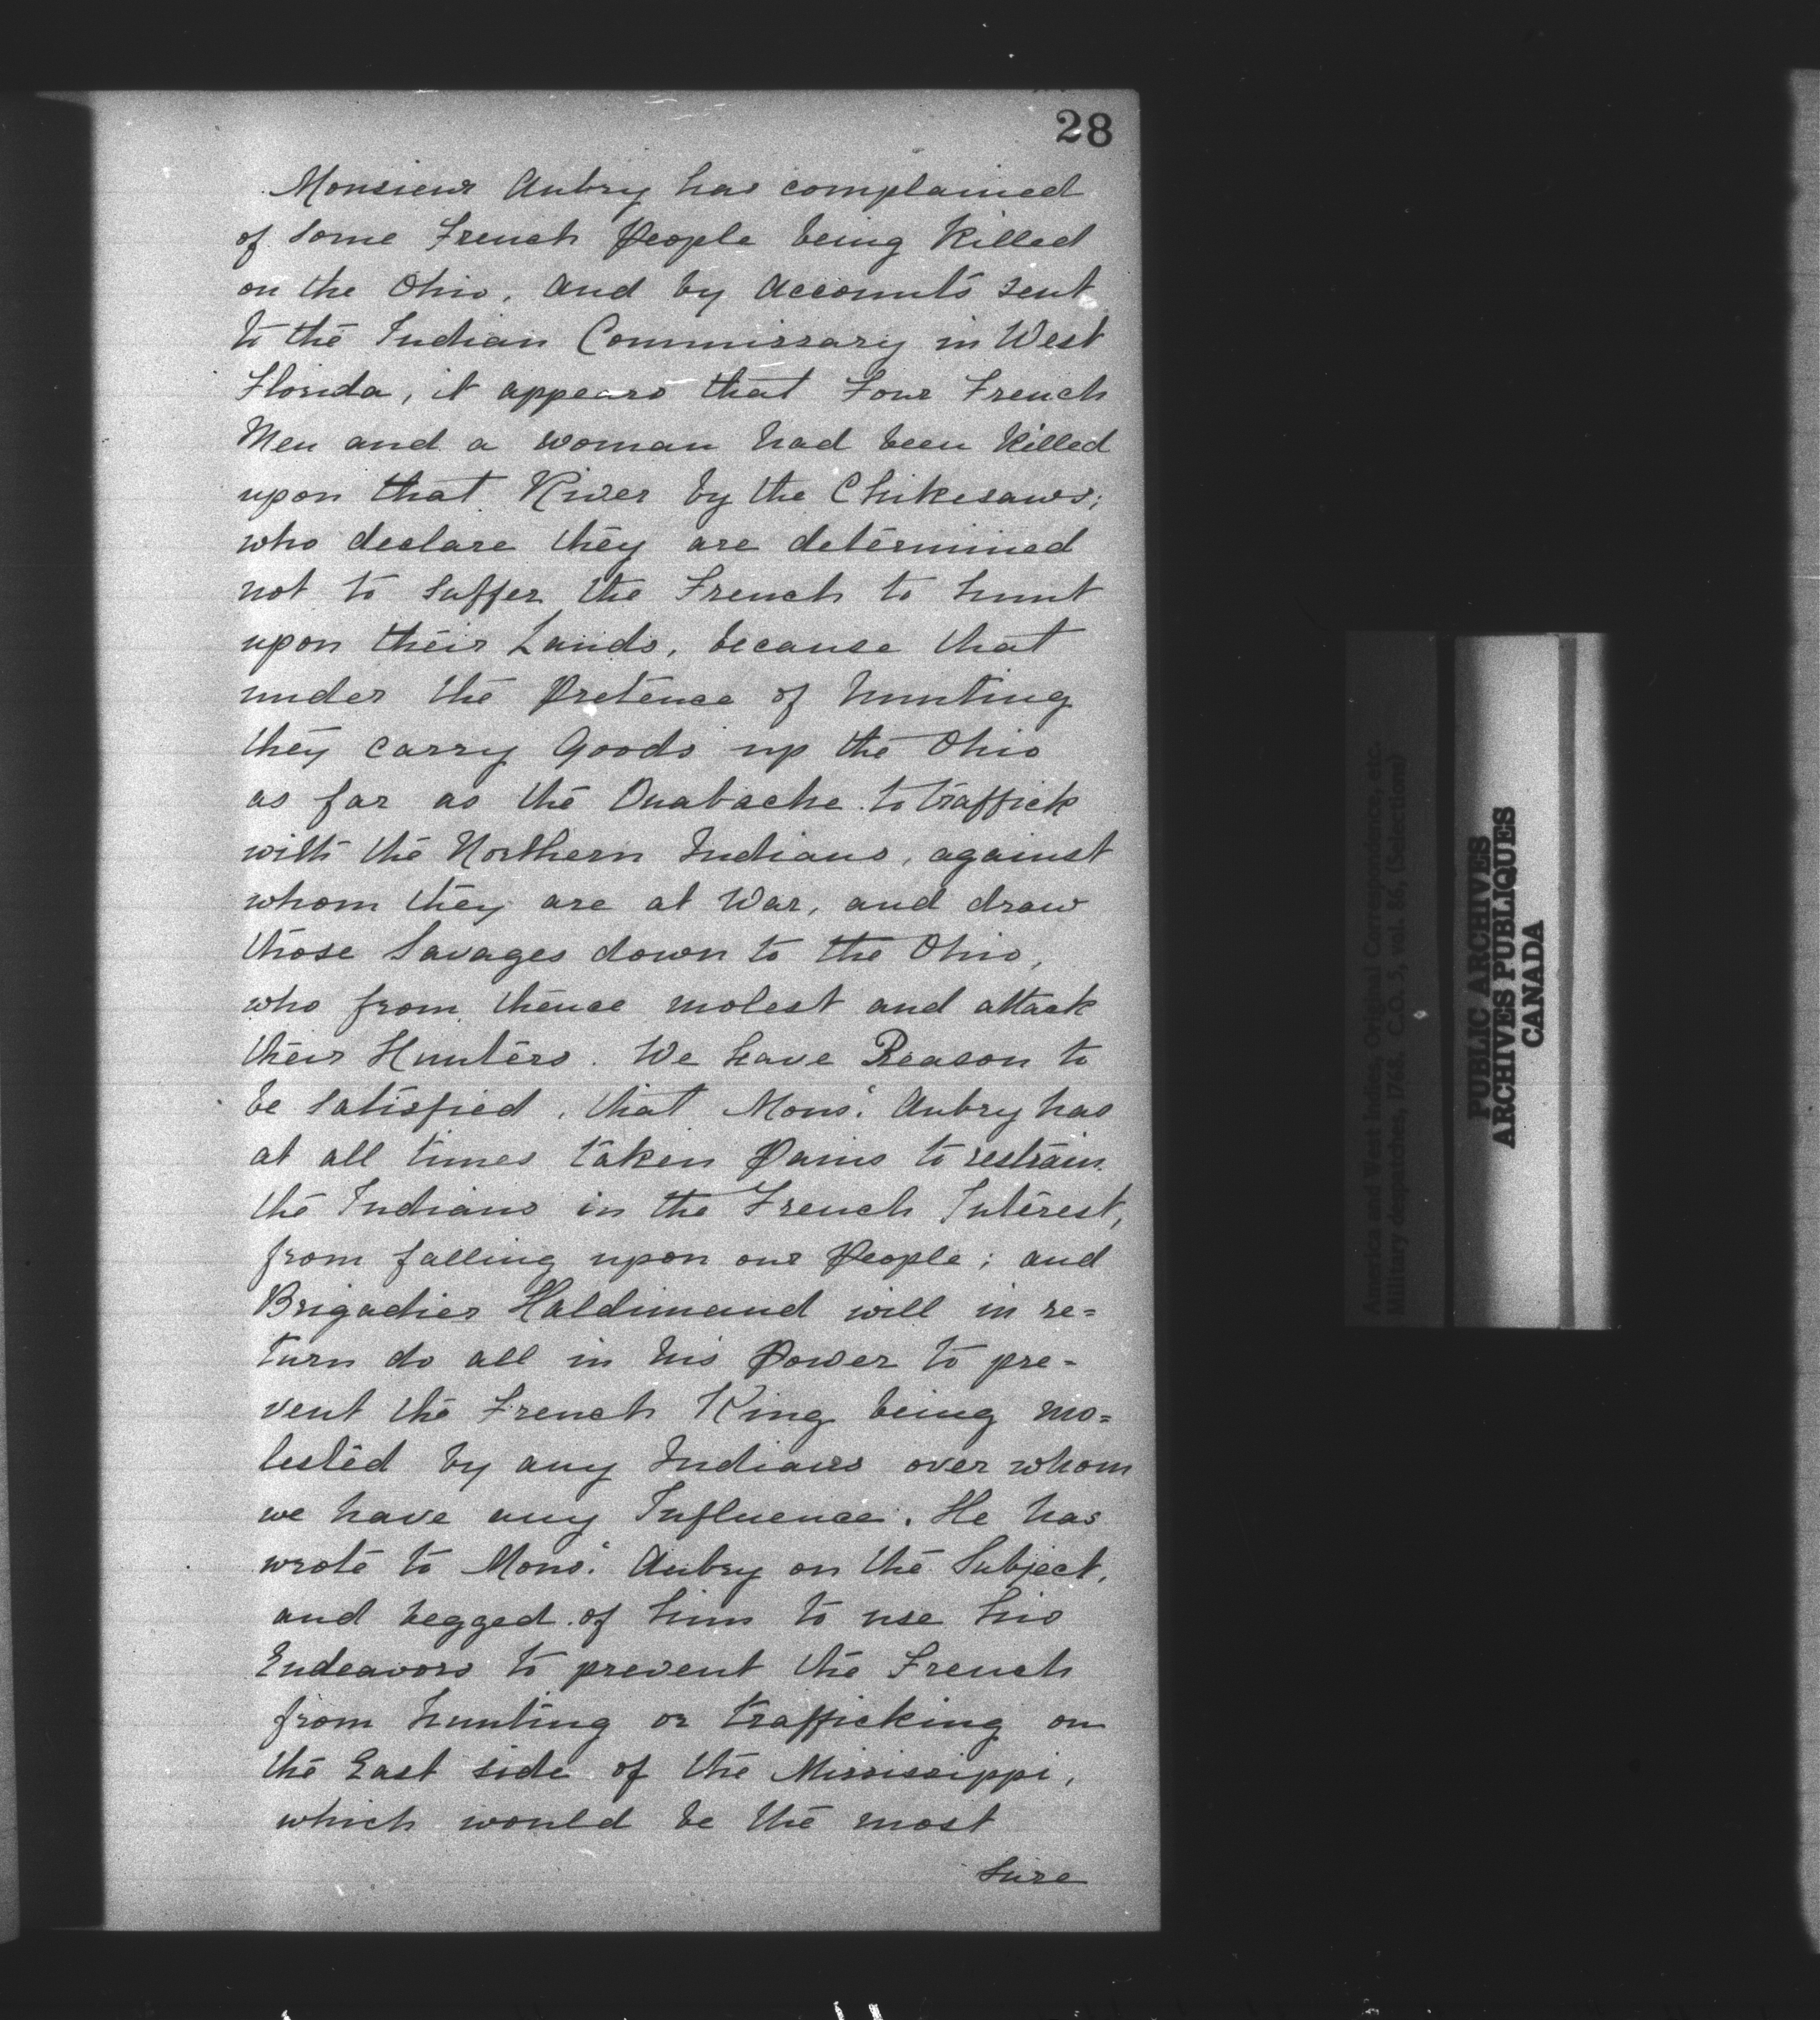 28
Monsieur Aubry has complained
of some French People being Killed
on the Ohio, and by Accounts sent
to the Indian Commissary in West
Florida, it appears that Four French
Men and a woman had been Killed
upon that River by the Chikesaws;
who declare they are determined
not to suffer the French to hunt
upon their Lands, because that
under the Pretence of hunting
they carry Goods up the Ohio
as far as the Ouabache to traffick
with the Northern Indians, against
whom they are at War, and draw
those Savages down to the Ohio,
who from thence molest and attack
their Hunters. We have Reason to
be satisfied, that Monsr. Aubry has
at all times taken Pains to restrain
the Indians in the French Interest,
from falling upon our People; and
Brigadier Haldimand will in re=
turn do all in his Power to pre-
vent the French King being mo=
lested by any Indians over whom
we have any Influence. He has
wrote to Monsr. Aubry on the Subject,
and begged of him to use his
Endeavors to prevent the French
from hunting or trafficking on
the East side of the Mississippi,
which would be the most
Sure
America and West Indies, Original Correspondence, etc.
Military despatches, 1768. C.O. 5, vol. 86, (Selections)
PUBLIC ARCHIVES
ARCHIVES PUBLIQUES
CANADA